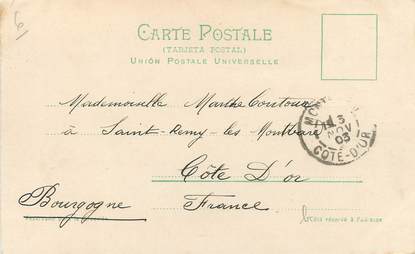 6
CARTE POSTALE
(TARJETA POSTAL)
UNIÓN POSTALE UNIVERSELLE
Mademoiselle Marthe Coutour
à Saint-Remy-les Montbard
Côte D'or
Bourgogne France
13
NOV
03
CÔTE-D'OR
Côté réservé à l'adresse